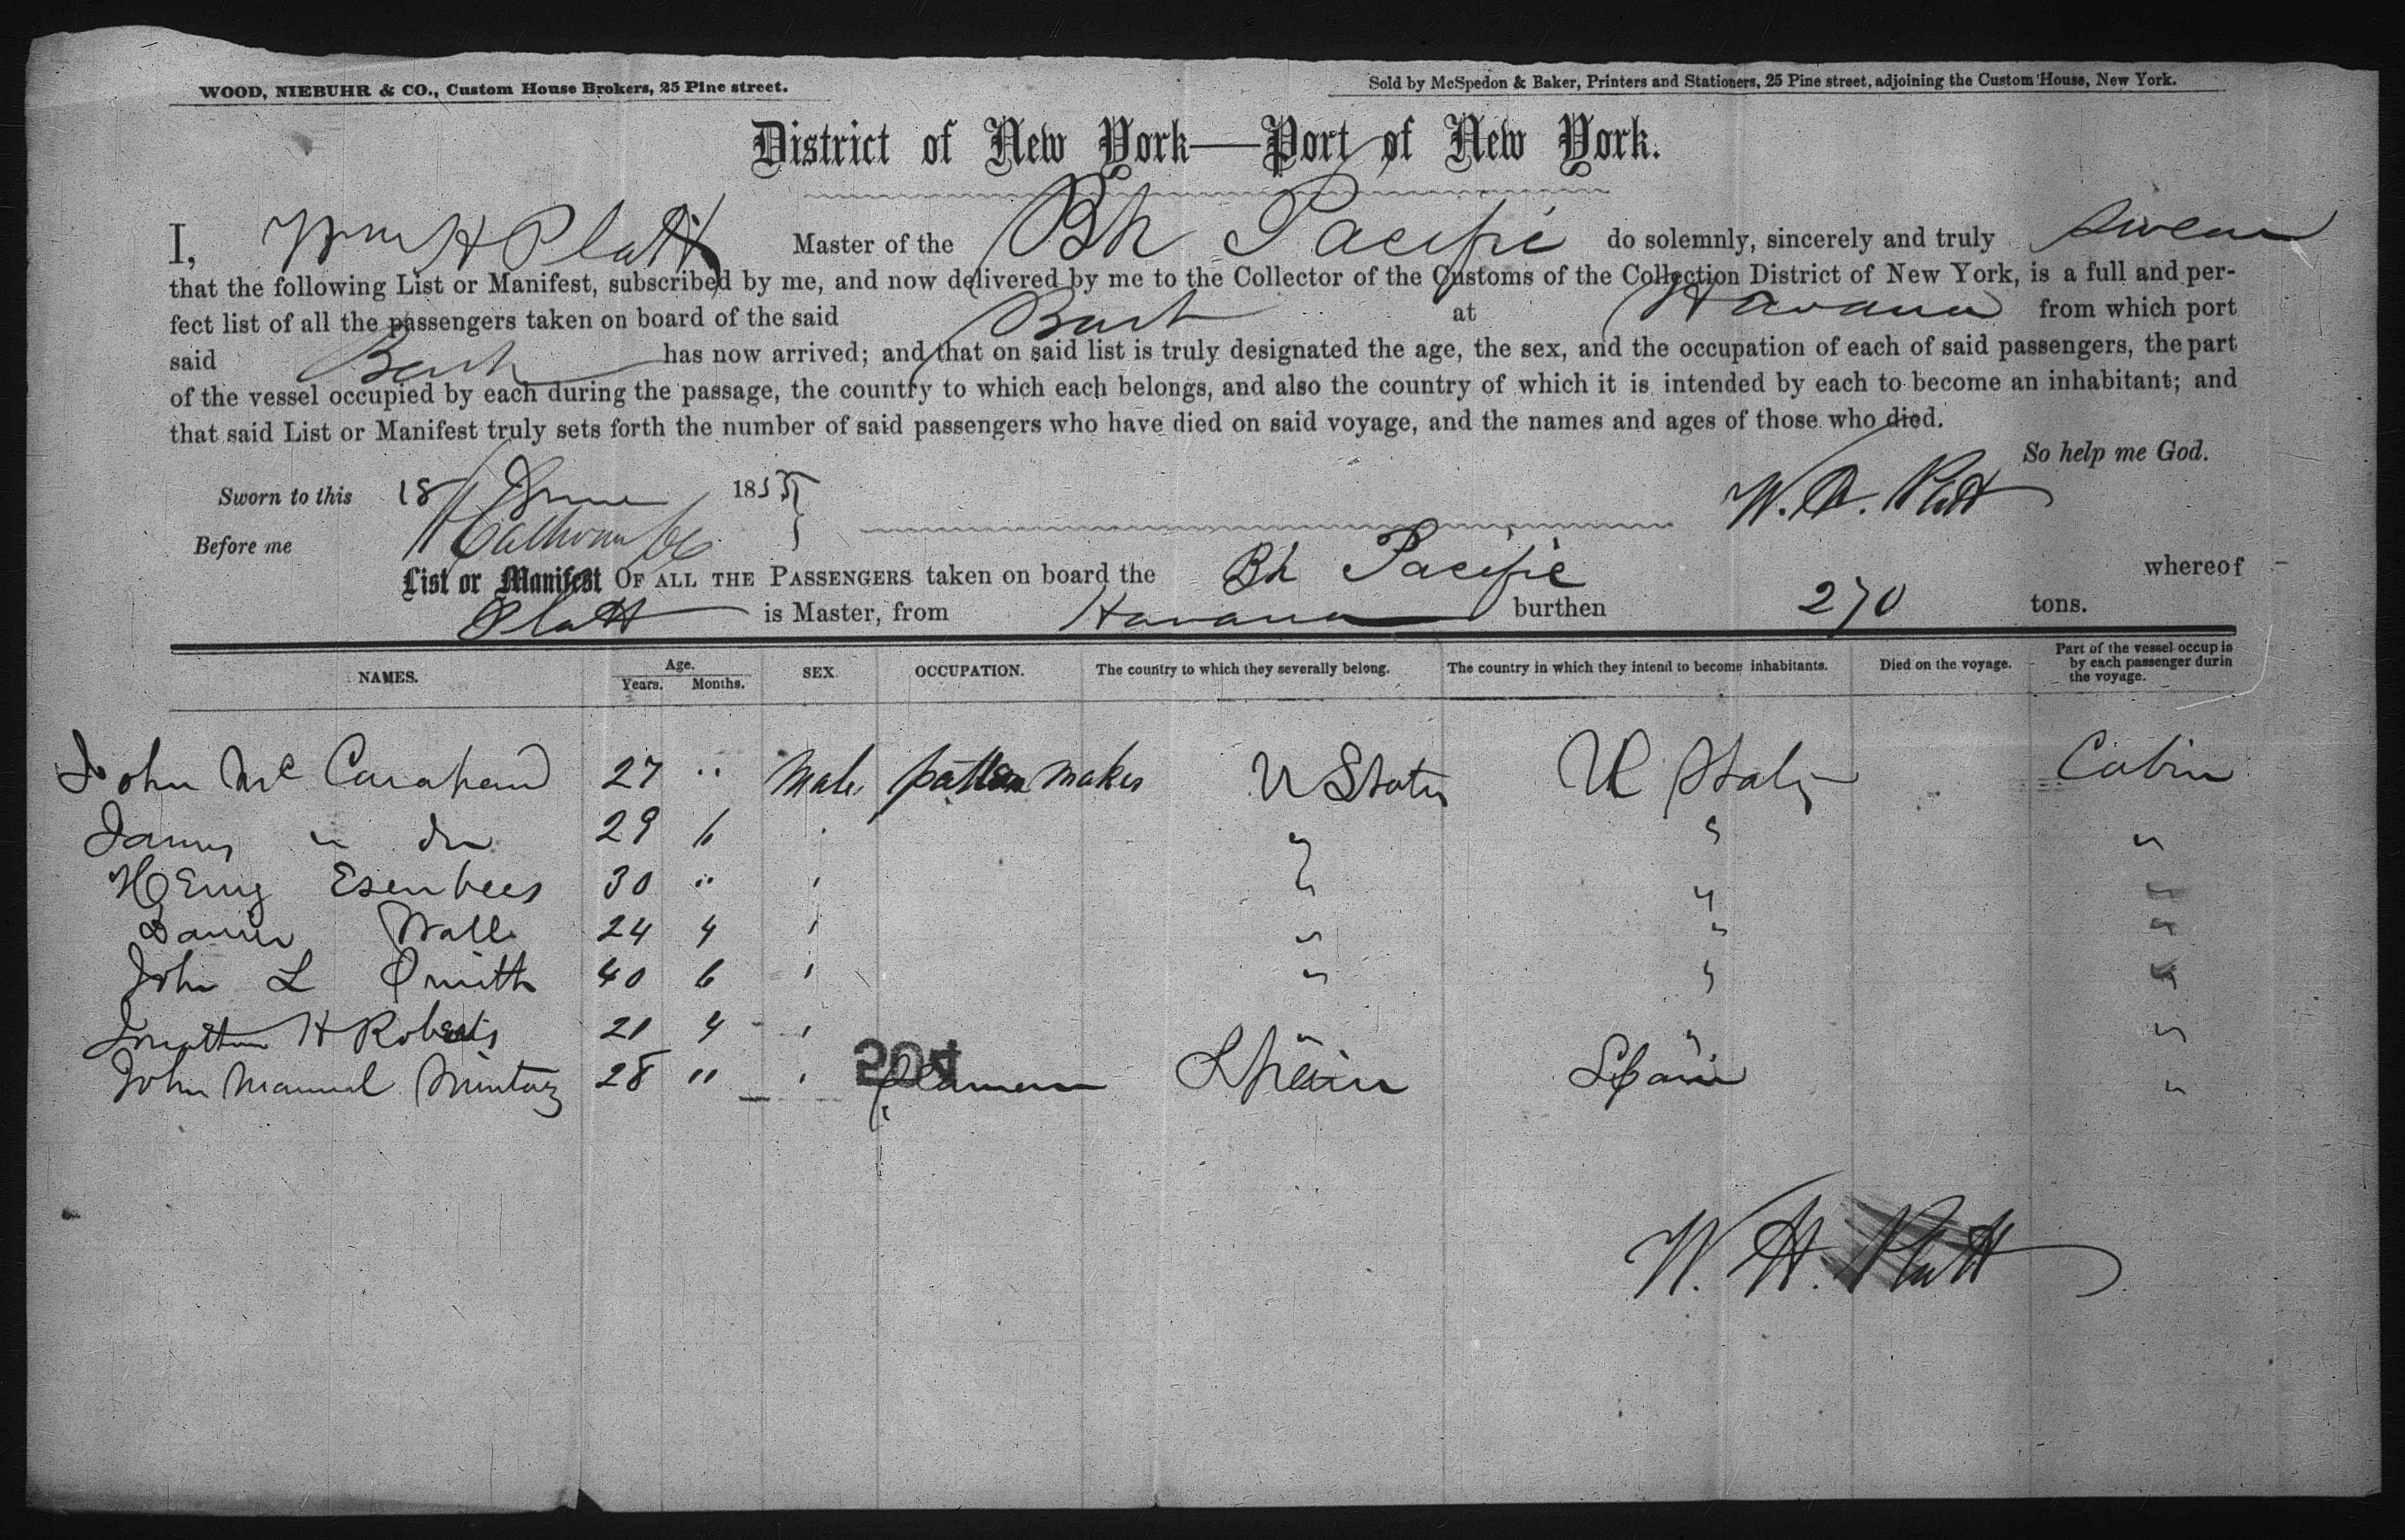 WOOD, NIEBUHR & CO., Custom House Brokers, 25 Pine street.
Sold by McSpedon & Baker, Printers and Stationers, 25 Pine street, adjoining the Custom House, New York.
District of New York—Port of New York.
I, Wm H Platt Master of the Bk Pacific do solemnly, sincerely and truly Swear
that the following List or Manifest, subscribed by me, and now delivered by me to the Collector of the Customs of the Collection District of New York, is a full and per-
fect list of all the passengers taken on board of the said Bark at Havana from which port
said Bark has now arrived; and that on said list is truly designated the age, the sex, and the occupation of each of said passengers, the part
of the vessel occupied by each during the passage, the country to which each belongs, and also the country of which it is intended by each to become an inhabitant; and
that said List or Manifest truly sets forth the number of said passengers who have died on said voyage, and the names and ages of those who died.
So help me God.
Sworn to this 18 June 1855 W. H. Platt
Before me Calhoun
List or Manifest OF ALL THE PASSENGERS taken on board the Bk Pacific whereof
Platt is Master, from Havana burthen 270 tons.
NAMES. Age. Years. Months. SEX. OCCUPATION. The country to which they severally belong. The country in which they intend to become inhabitants. Died on the voyage. Part of the vessel occupie by each passenger durin the voyage.
John Mc 27 " Male pattern maker U States U States Cabin
James " do 29 6 " " "
30 " " " "
Wall 24 4 " " "
John L Smith 40 6 " " "
H Roberts 21 4 " " "
John Manuel 28 " Spain Spain "
204
W. H. Platt